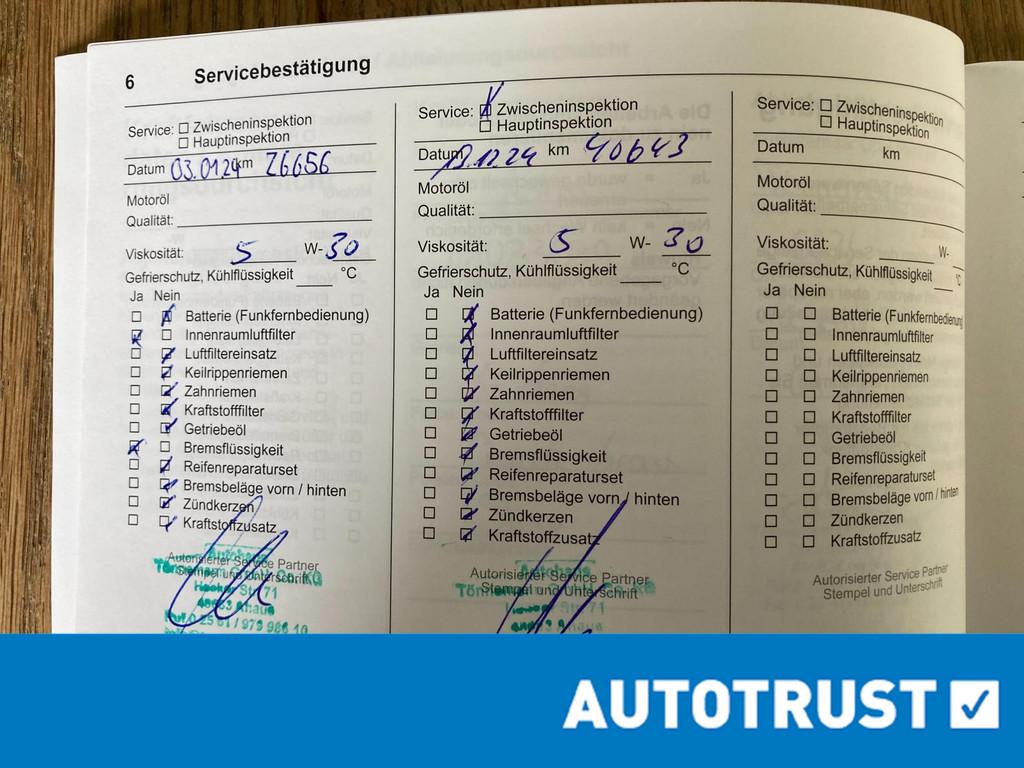 6 Servicebestätigung
Service: Zwischeninspektion
Hauptinspektion
Datum 03.01.24 km 26656
Motoröl
Qualität:
Viskosität: 5 W- 30
Gefrierschutz, Kühlflüssigkeit °C
Ja Nein
Batterie (Funkfernbedienung)
Innenraumluftfilter
Luftfiltereinsatz
Keilrippenriemen
Zahnriemen
Kraftstofffilter
Getriebeöl
Bremsflüssigkeit
Reifenreparaturset
Bremsbeläge vorn / hinten
Zündkerzen
Kraftstoffzusatz
Autorisierter Service Partner
Stempel und Unterschrift
Autohaus
Hecker Str. 71
48683 Ahaus
Service: Zwischeninspektion
Hauptinspektion
Datum 12.24 km 40643
Motoröl
Qualität:
Viskosität: 5 W- 30
Gefrierschutz, Kühlflüssigkeit °C
Ja Nein
Batterie (Funkfernbedienung)
Innenraumluftfilter
Luftfiltereinsatz
Keilrippenriemen
Zahnriemen
Kraftstofffilter
Getriebeöl
Bremsflüssigkeit
Reifenreparaturset
Bremsbeläge vorn / hinten
Zündkerzen
Kraftstoffzusatz
Autorisierter Service Partner
Stempel und Unterschrift
Autohaus
Str. 71
Ahaus
Service: Zwischeninspektion
Hauptinspektion
Datum km
Motoröl
Qualität:
Viskosität: W-
Gefrierschutz, Kühlflüssigkeit °C
Ja Nein
Batterie (Funkfernbedienung)
Innenraumluftfilter
Luftfiltereinsatz
Keilrippenriemen
Zahnriemen
Kraftstofffilter
Getriebeöl
Bremsflüssigkeit
Reifenreparaturset
Bremsbeläge vorn / hinten
Zündkerzen
Kraftstoffzusatz
Autorisierter Service Partner
Stempel und Unterschrift
AUTOTRUST